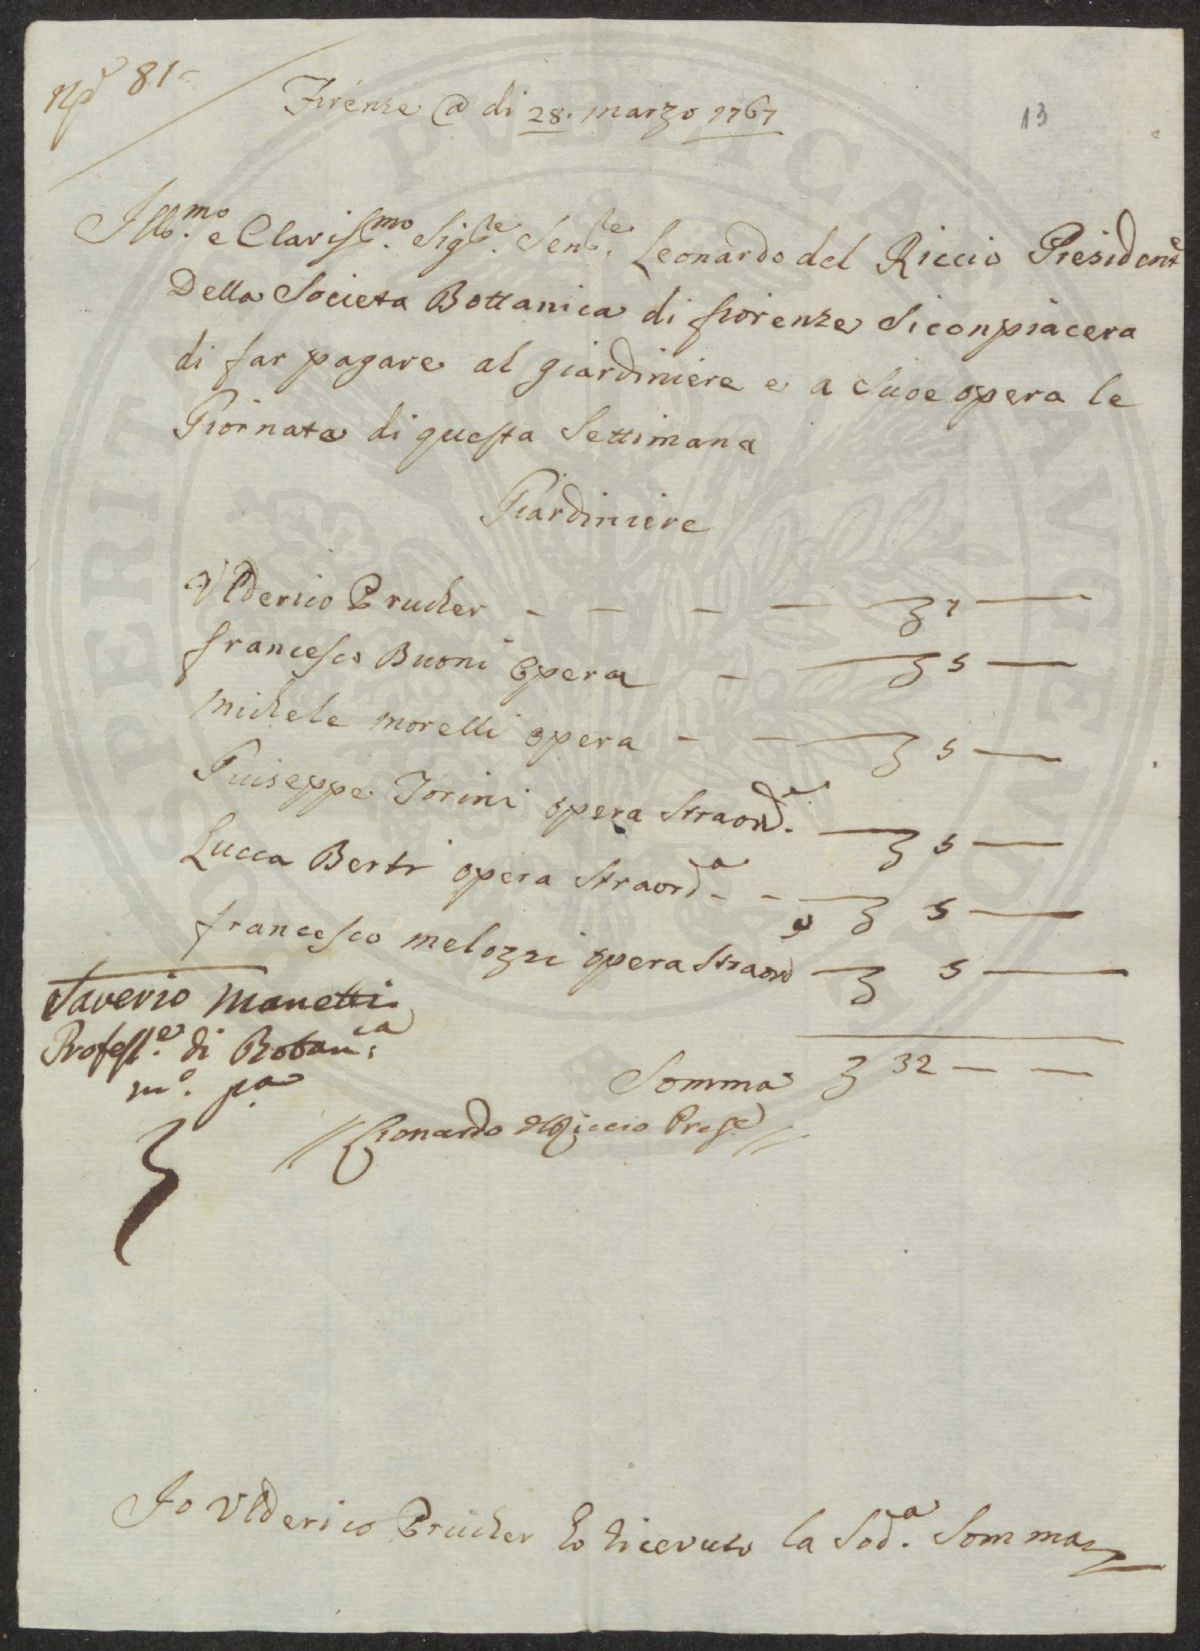 N.º 81
Firenze @ di 28. marzo 1767
13
Ill.mo e Clariss.mo Sig.re Sen.re Leonardo del Riccio President.e
Della Societa Bottanica di fiorenze Si conpiacera
di far pagare al giardiniere e a Suoe opera le
Giornate di questa Settimana
Giardiniere
Vlderico Prucker - - - - 7
francesco Buoni Opera - 5
Michele morelli opera - - 5
Guiseppe Torini opera Straord.a 5
Lucca Berti opera Straord.a - - 5
francesco melozzi opera Straord 5
Saverio Manetti
Profess.e di Botan.ca
m.o p.a
Somma 32 - -
Leonardo del Riccio Pres.e
Io Vlderico Prucker ho riceuuto la Sod.a Somma
SOCIETAS PUBLICAE PROSPERITATIS AUGENDAE